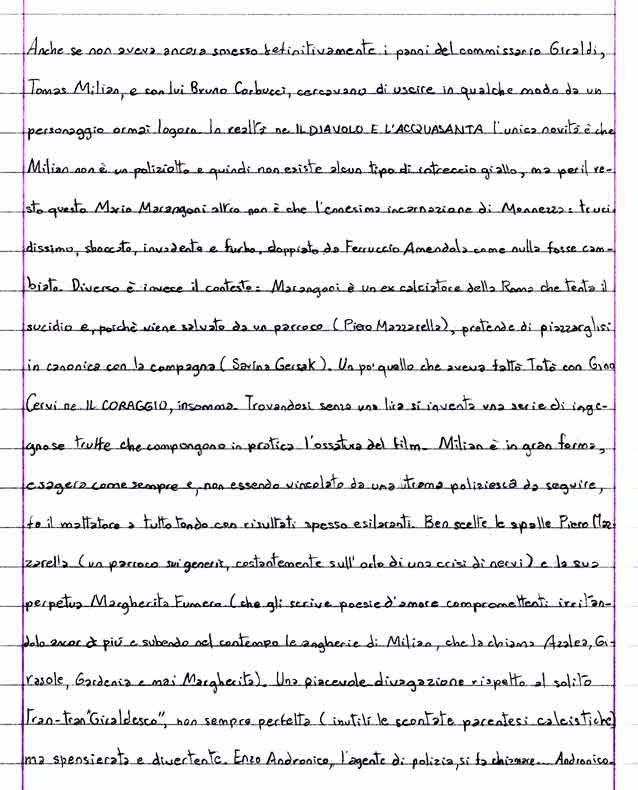 Anche se non aveva ancora smesso definitivamente i panni del commissario Giraldi,
Tomas Milian, e con lui Bruno Corbucci, cercavano di uscire in qualche modo da un
personaggio ormai logoro. In realtà ne IL DIAVOLO E L'ACQUASANTA l'unica novità è che
Milian non è un poliziotto e quindi non esiste alcun tipo di intreccio giallo, ma per il re-
sto questo Mario Marangoni altro non è che l'ennesima incarnazione di Monnezza: truci
dissimo, sboccato, invadente e furbo, doppiato da Ferruccio Amendola come nulla fosse cam-
biato. Diverso è invece il contesto: Marangoni è un ex calciatore della Roma che tenta il
suicidio e, poichè viene salvato da un parroco (Piero Mazzarella), pretende di piazzarglisi
in canonica con la compagna (Savina Gersak). Un po' quello che aveva fatto Totò con Gino
Cervi ne IL CORAGGIO, insomma. Trovandosi senza una lira si inventa una serie di inge-
gnose truffe che compongono in pratica l'ossatura del film. Milian è in gran forma,
esagera come sempre e, non essendo vincolato da una trama poliziesca da seguire,
fa il mattatore a tutto tondo con risultati spesso esilaranti. Ben scelte le spalle Piero Maz-
zarella (un parroco sui generis, costantemente sull'orlo di una crisi di nervi) e la sua
perpetua Margherita Fumero (che gli scrive poesie d'amore compromettenti irritan-
dolo ancor di più e subendo nel contempo le angherie di Milian, che la chiama Azalea, Gi-
rasole, Gardenia e mai Margherita). Una piacevole divagazione rispetto al solito
Tran-tran "Giraldesco", non sempre perfetta (inutili le scontate parentesi calcistiche)
ma spensierata e divertente. Enzo Andronico, l'agente di polizia, si fa chiamare... Andronico.